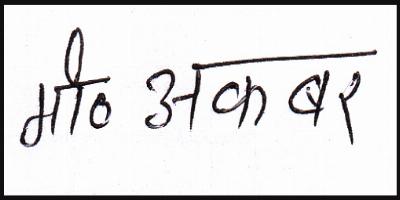 मो० अकबर